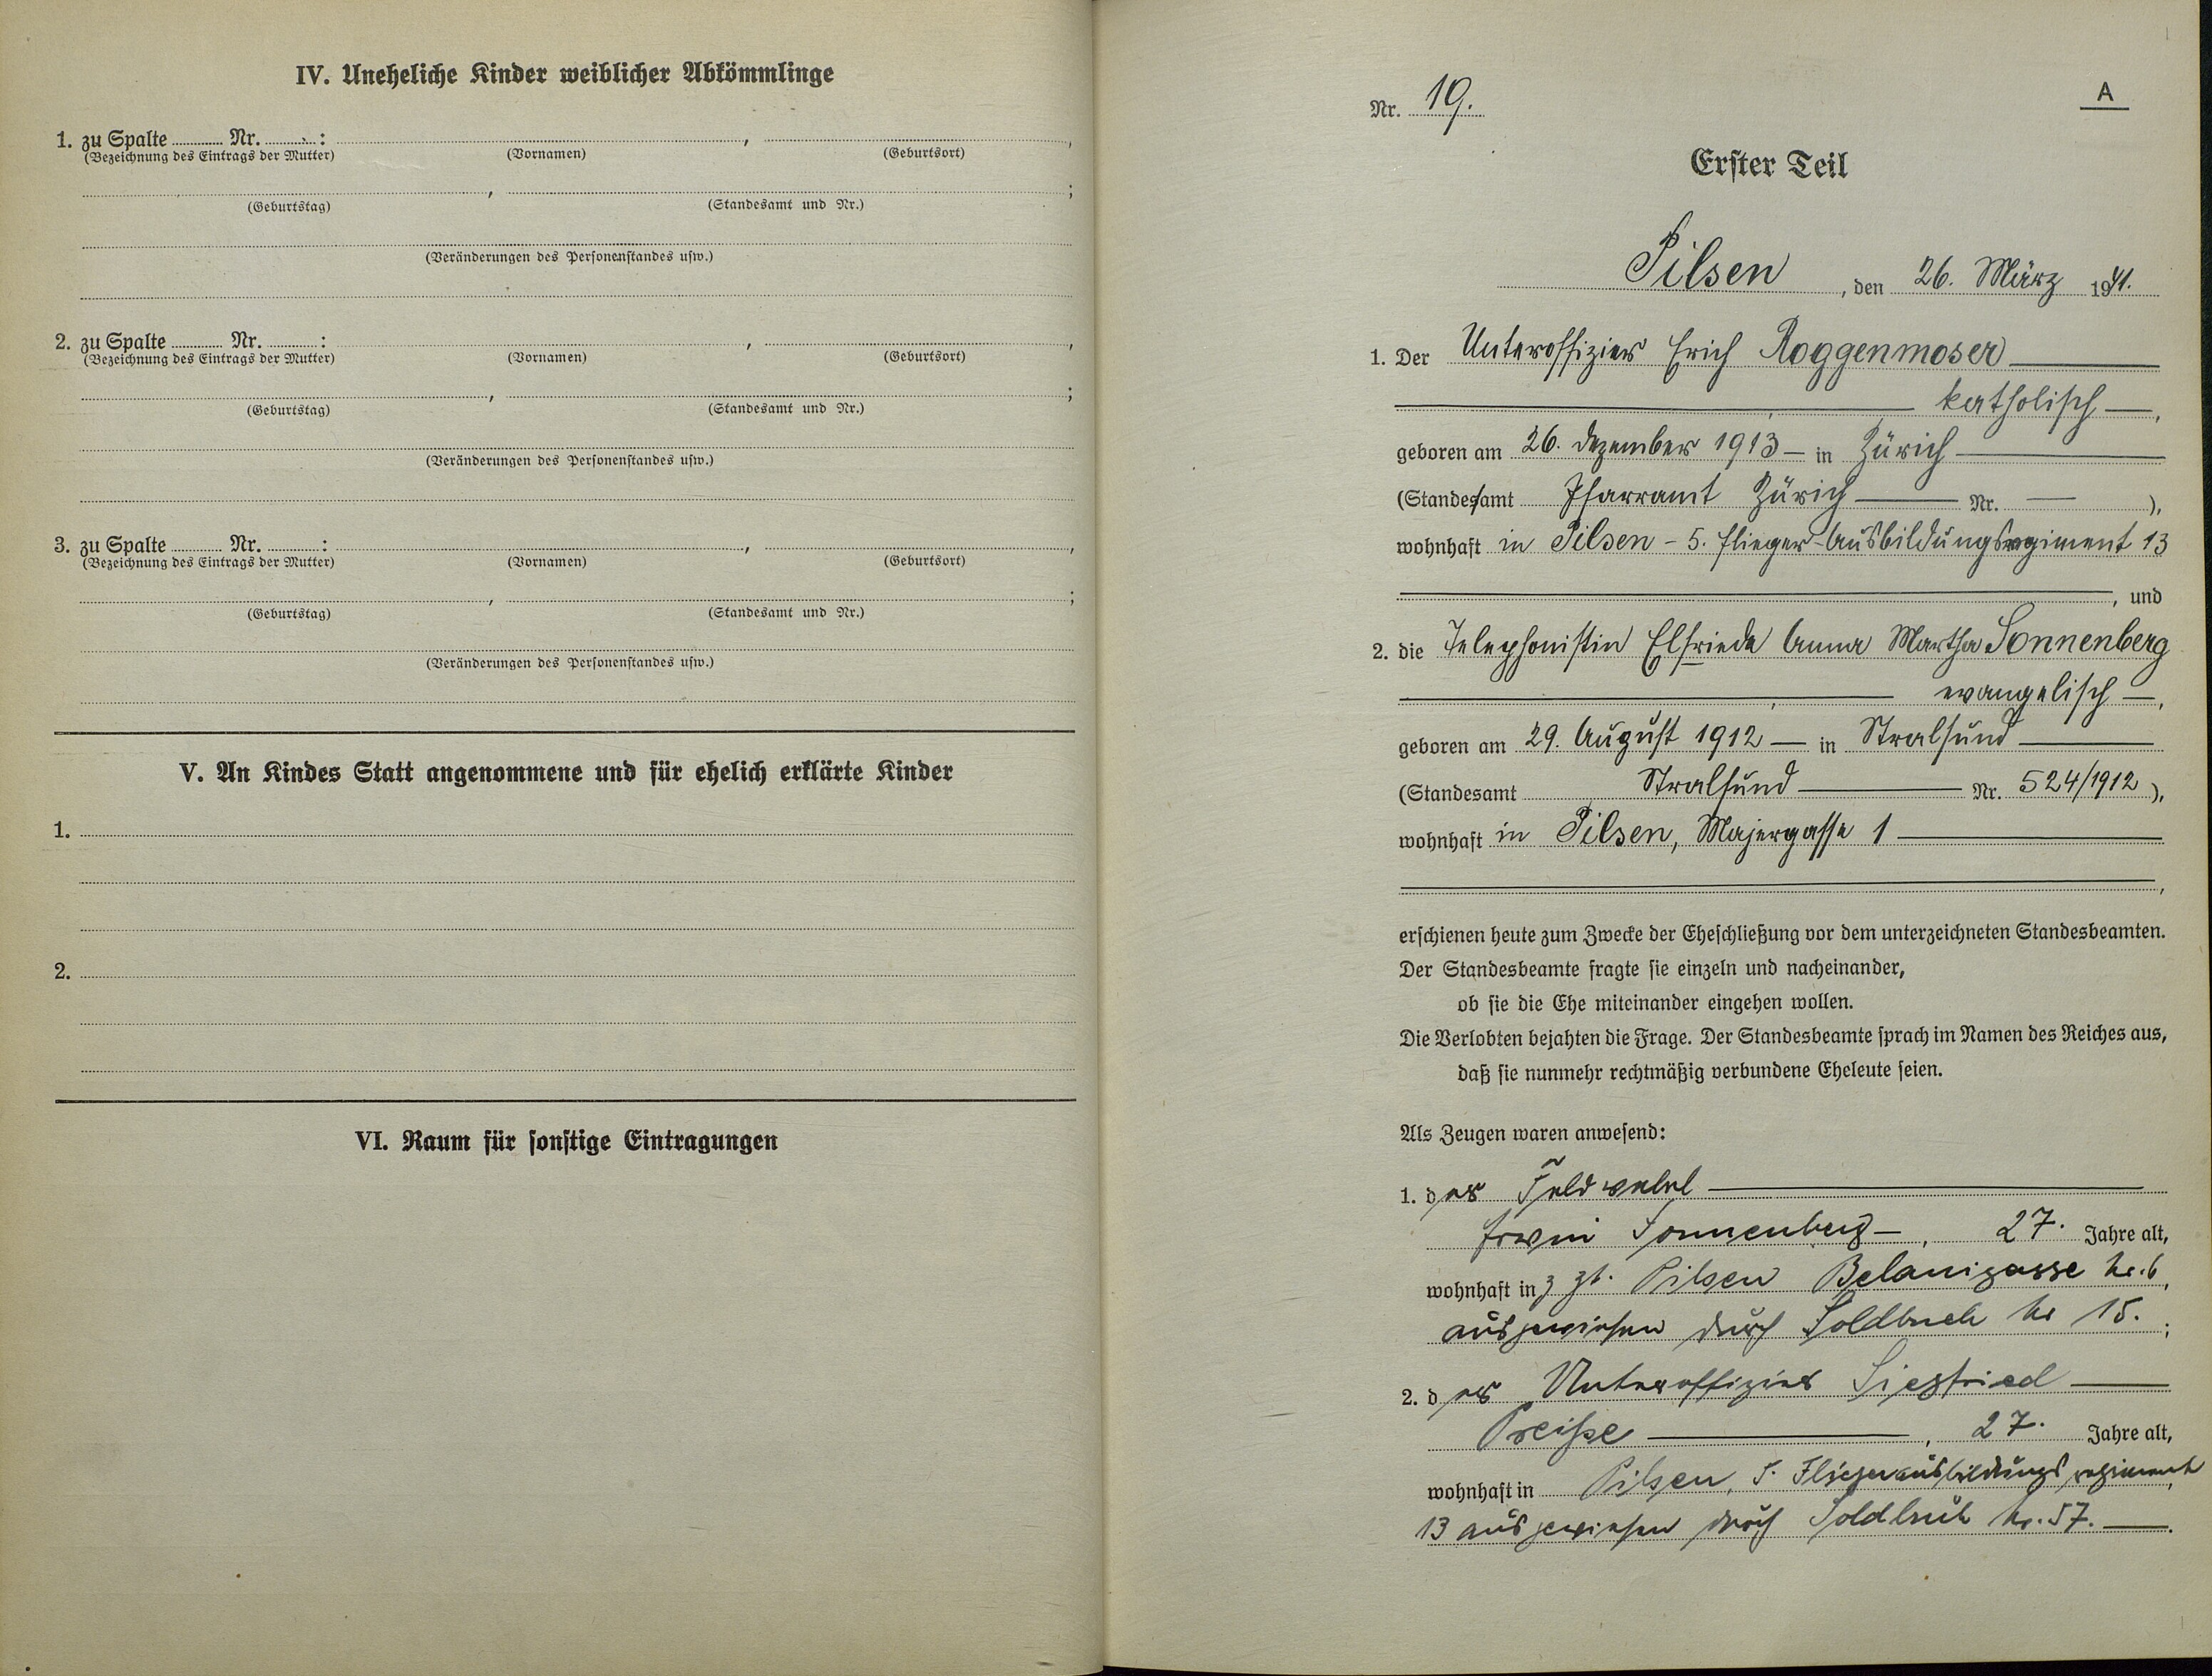 IV. Uneheliche Kinder weiblicher Abkömmlinge
1. zu Spalte ........ Nr. ........ : ........ , ........ ,
(Bezeichnung des Eintrags der Mutter) (Vornamen) (Geburtsort)
........ , ........ ;
(Geburtstag) (Standesamt und Nr.)
(Veränderungen des Personenstandes usw.)
2. zu Spalte ........ Nr. ........ : ........ , ........ ,
(Bezeichnung des Eintrags der Mutter) (Vornamen) (Geburtsort)
........ , ........ ;
(Geburtstag) (Standesamt und Nr.)
(Veränderungen des Personenstandes usw.)
3. zu Spalte ........ Nr. ........ : ........ , ........ ,
(Bezeichnung des Eintrags der Mutter) (Vornamen) (Geburtsort)
........ , ........ ;
(Geburtstag) (Standesamt und Nr.)
(Veränderungen des Personenstandes usw.)
V. An Kindes Statt angenommene und für ehelich erklärte Kinder
1.
2.
VI. Raum für sonstige Eintragungen
A
Nr. 19.
Erster Teil
Pilsen, den 26. März 1941.
1. Der Unteroffizier Erich Roggenmoser
katholisch —,
geboren am 26. Dezember 1913 — in Zürich —
(Standesamt Pfarramt Zürich — Nr. — ),
wohnhaft in Pilsen - 5. Flieger-Ausbildungsregiment 13
, und
2. die Telephonistin Elfriede Anna Martha Sonnenberg
evangelisch —,
geboren am 29. August 1912 — in Stralsund —
(Standesamt Stralsund — Nr. 524/1912 ),
wohnhaft in Pilsen, Majergasse 1 —
,
erschienen heute zum Zwecke der Eheschließung vor dem unterzeichneten Standesbeamten.
Der Standesbeamte fragte sie einzeln und nacheinander,
ob sie die Ehe miteinander eingehen wollen.
Die Verlobten bejahten die Frage. Der Standesbeamte sprach im Namen des Reiches aus,
daß sie nunmehr rechtmäßig verbundene Eheleute seien.
Als Zeugen waren anwesend:
1. der Feldwebel —
Erwin Sonnenberg —, 27. Jahre alt,
wohnhaft in z zt. Pilsen Belanigasse Nr. 6,
ausgewiesen durch Soldbuch Nr 15. ;
2. der Unteroffizier Siegfried —
Preiße —, 27. Jahre alt,
wohnhaft in Pilsen, 5. Fliegerausbildungsregiment
13 ausgewiesen durch Soldbuch Nr. 57. —.